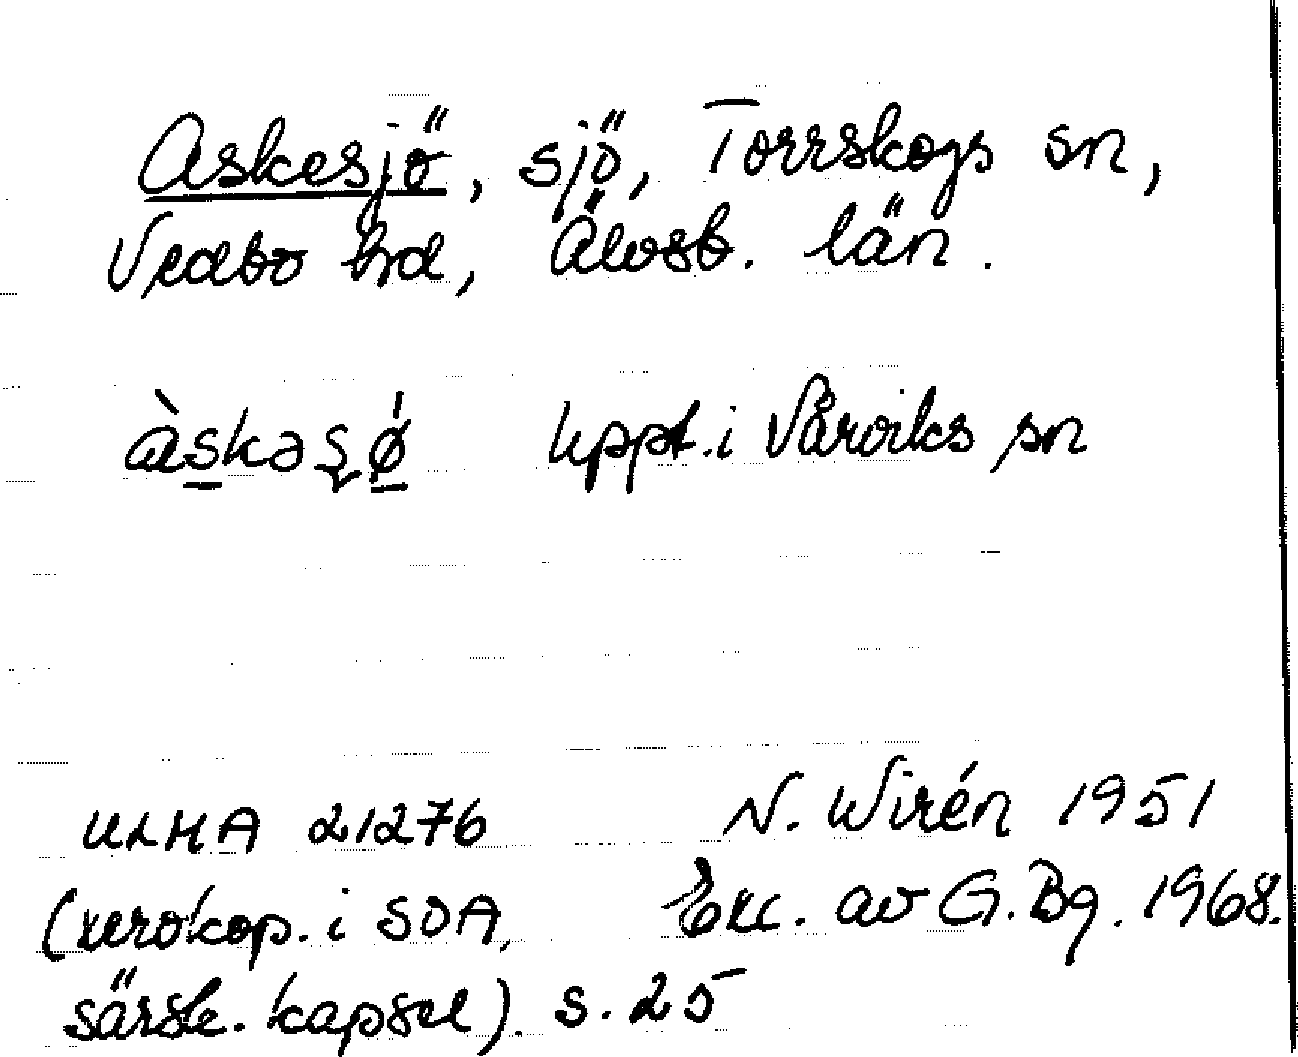 Askesjö, sjö, Torrskogs sn,
Vedbo hd, Älvsb. län.
àskəşø̍ uppt. i Vårviks sn
ULMA 21276 N. Wirén 1951
(xerokop. i SOA, Exc. av G. Bg. 1968.
särsk. kapsel). s. 25